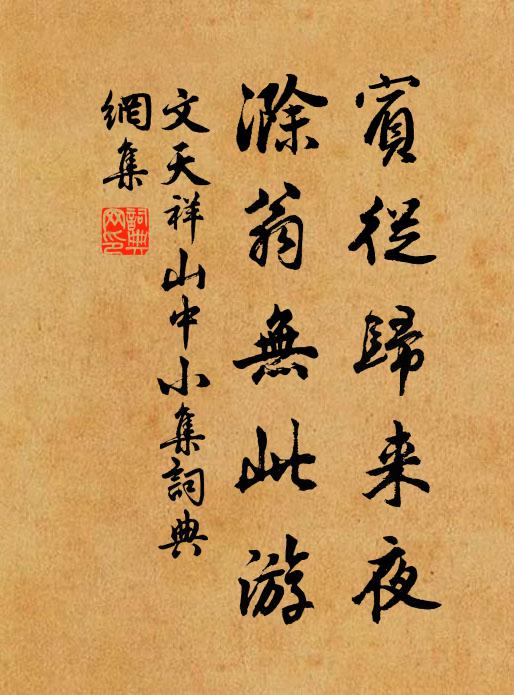 賓從歸来夜
滁翁無此游
文天祥山中小集詞典
網集
詞典網印